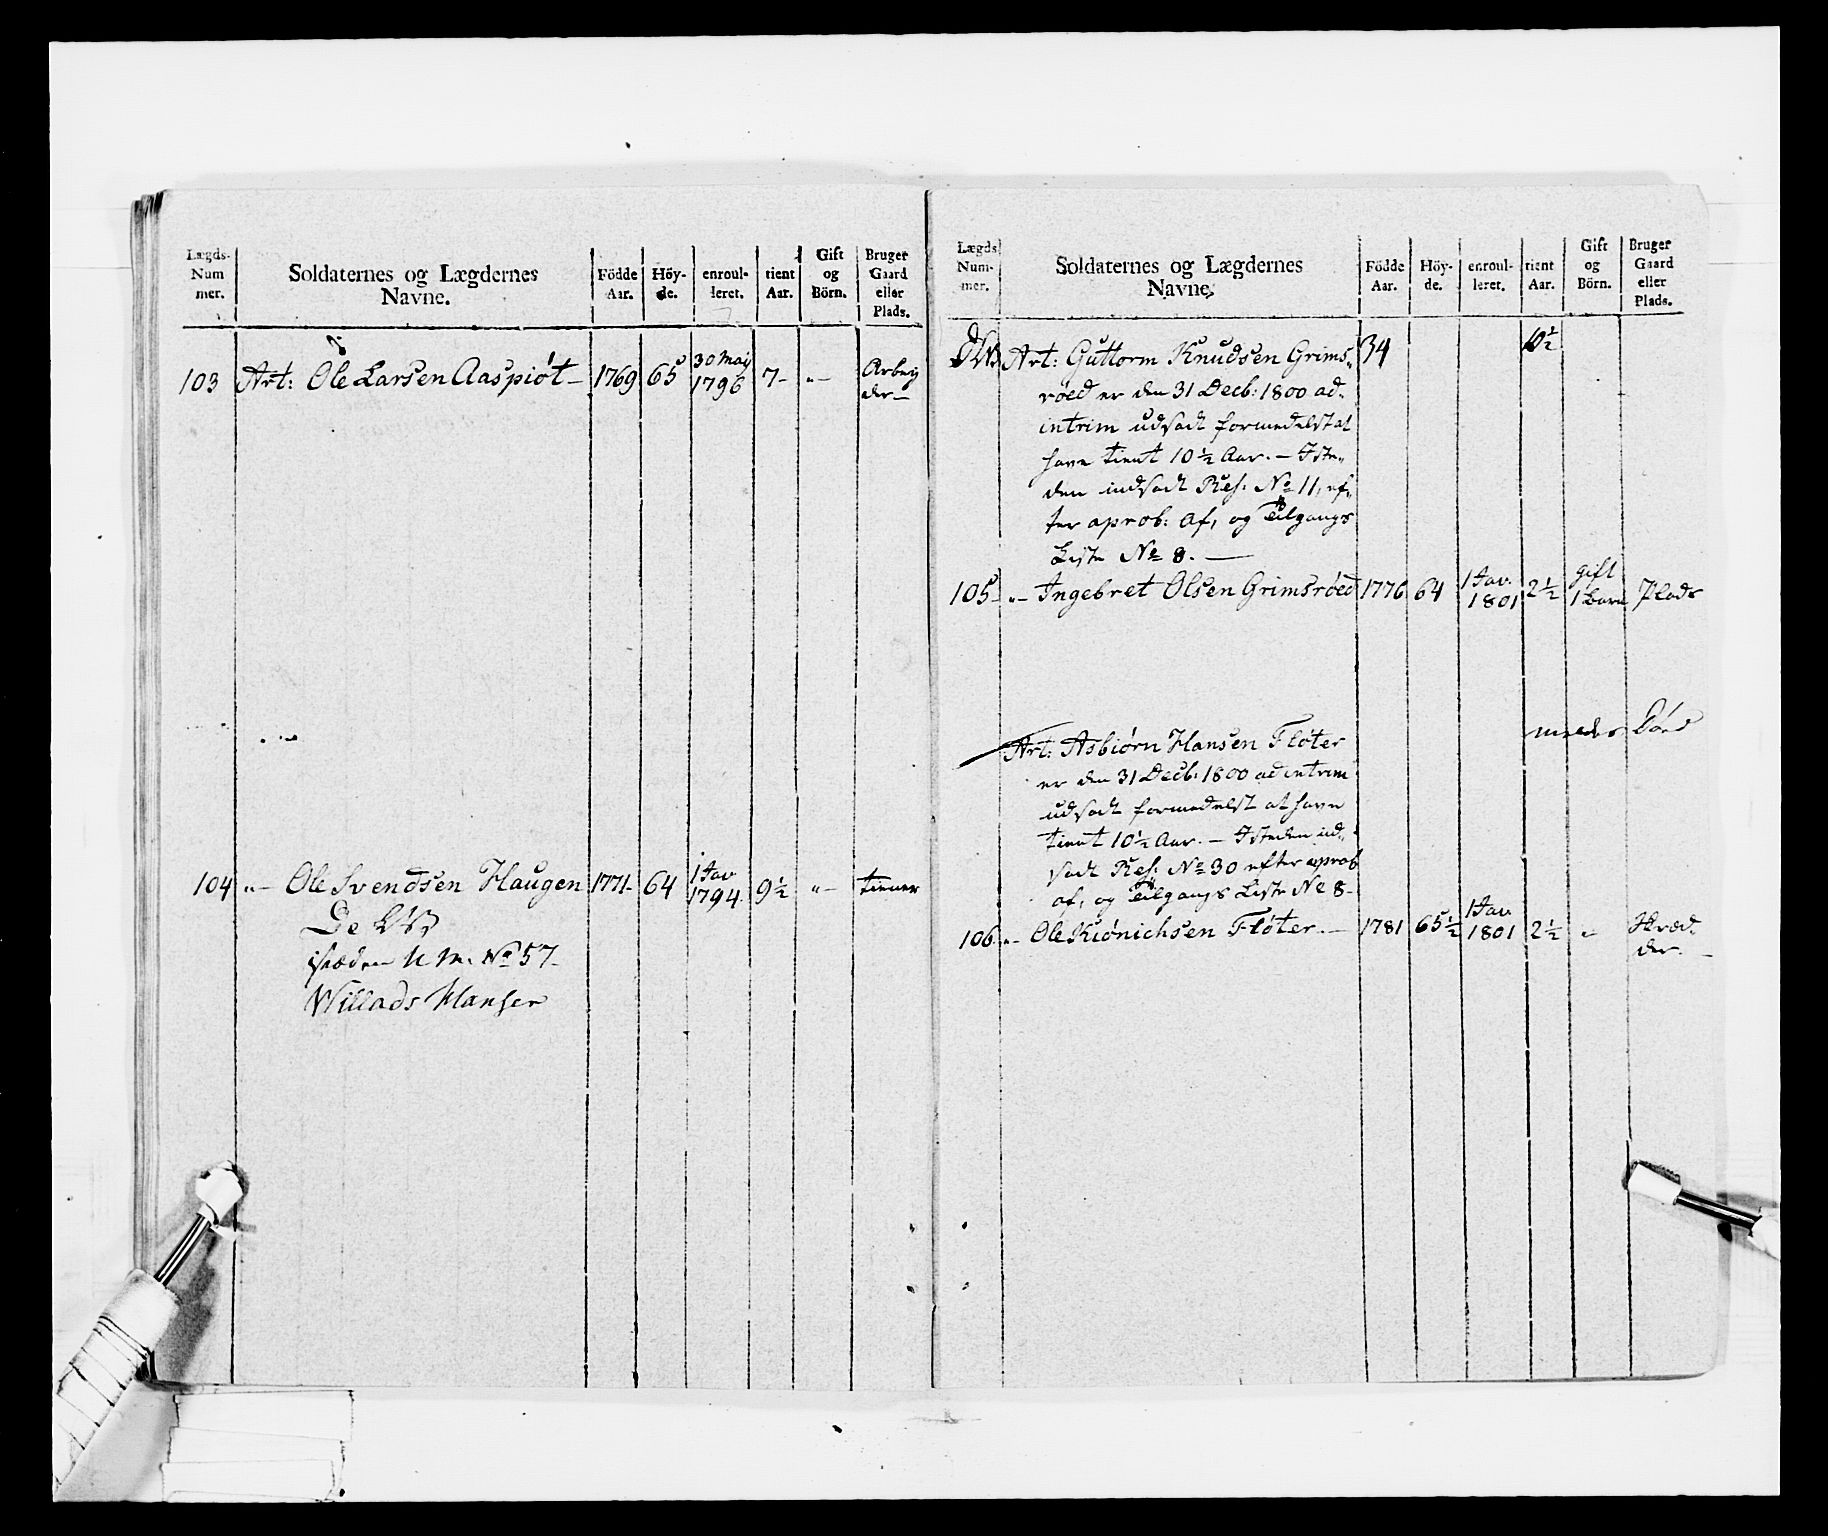 Lægds-
Num
mer.
Soldaternes og Lægdernes
Navne.
Födde
Aar.
Höy-
de.
enroul-
leret.
tient
Aar.
Gift
og
Börn.
Bruger
Gaard
eller
Plads.
103 Art: Ole Larsen Aaspiót 1769 65 30 Maij 1796 7 „ Arbey
der
104 „ Ole Svendsen Haugen 1771 64 1 Jav 1794 9½ „ tiener
isteden N. M. No 57
Willads Hansen
Lægds
Num-
mer.
Soldaternes og Lægdernes
Navne.
Födde
Aar.
Höy-
de.
enroul-
leret.
tient
Aar.
Gift
og
Börn.
Bruger
Gaard
eller
Plads.
Art: Guttorm Knudsen Grims„ 34 10½
róed er den 31 Decb: 1800 ad„
intrim udsadt formedelst at
have tient 10½ Aar. – Iste„
den indsadt Res: No 11, ef„
ter aprob: Af, og Tilgangs
Liste No 8.
105 „ Ingebret Olsen Grimsróed 1776 64 1 Jav 1801 2½ gift 1 Barn Plads
Art: Asbiórn Hansen Flóter
er den 31 Decb: 1800 ad intrim
udsadt formedelst at have
tient 10½ Aar. – Isteden ind„
sadt Res: No 30 efter aprob
af, og Tilgangs Liste No 8
106 „ Ole Kiónichsen Flóter 1781 65½ 1 Jav 1801 2½ „ Skræd
der.